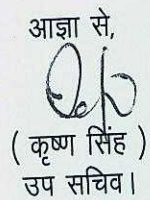 आज्ञा से,
( कृष्ण सिंह )
उप सचिव।